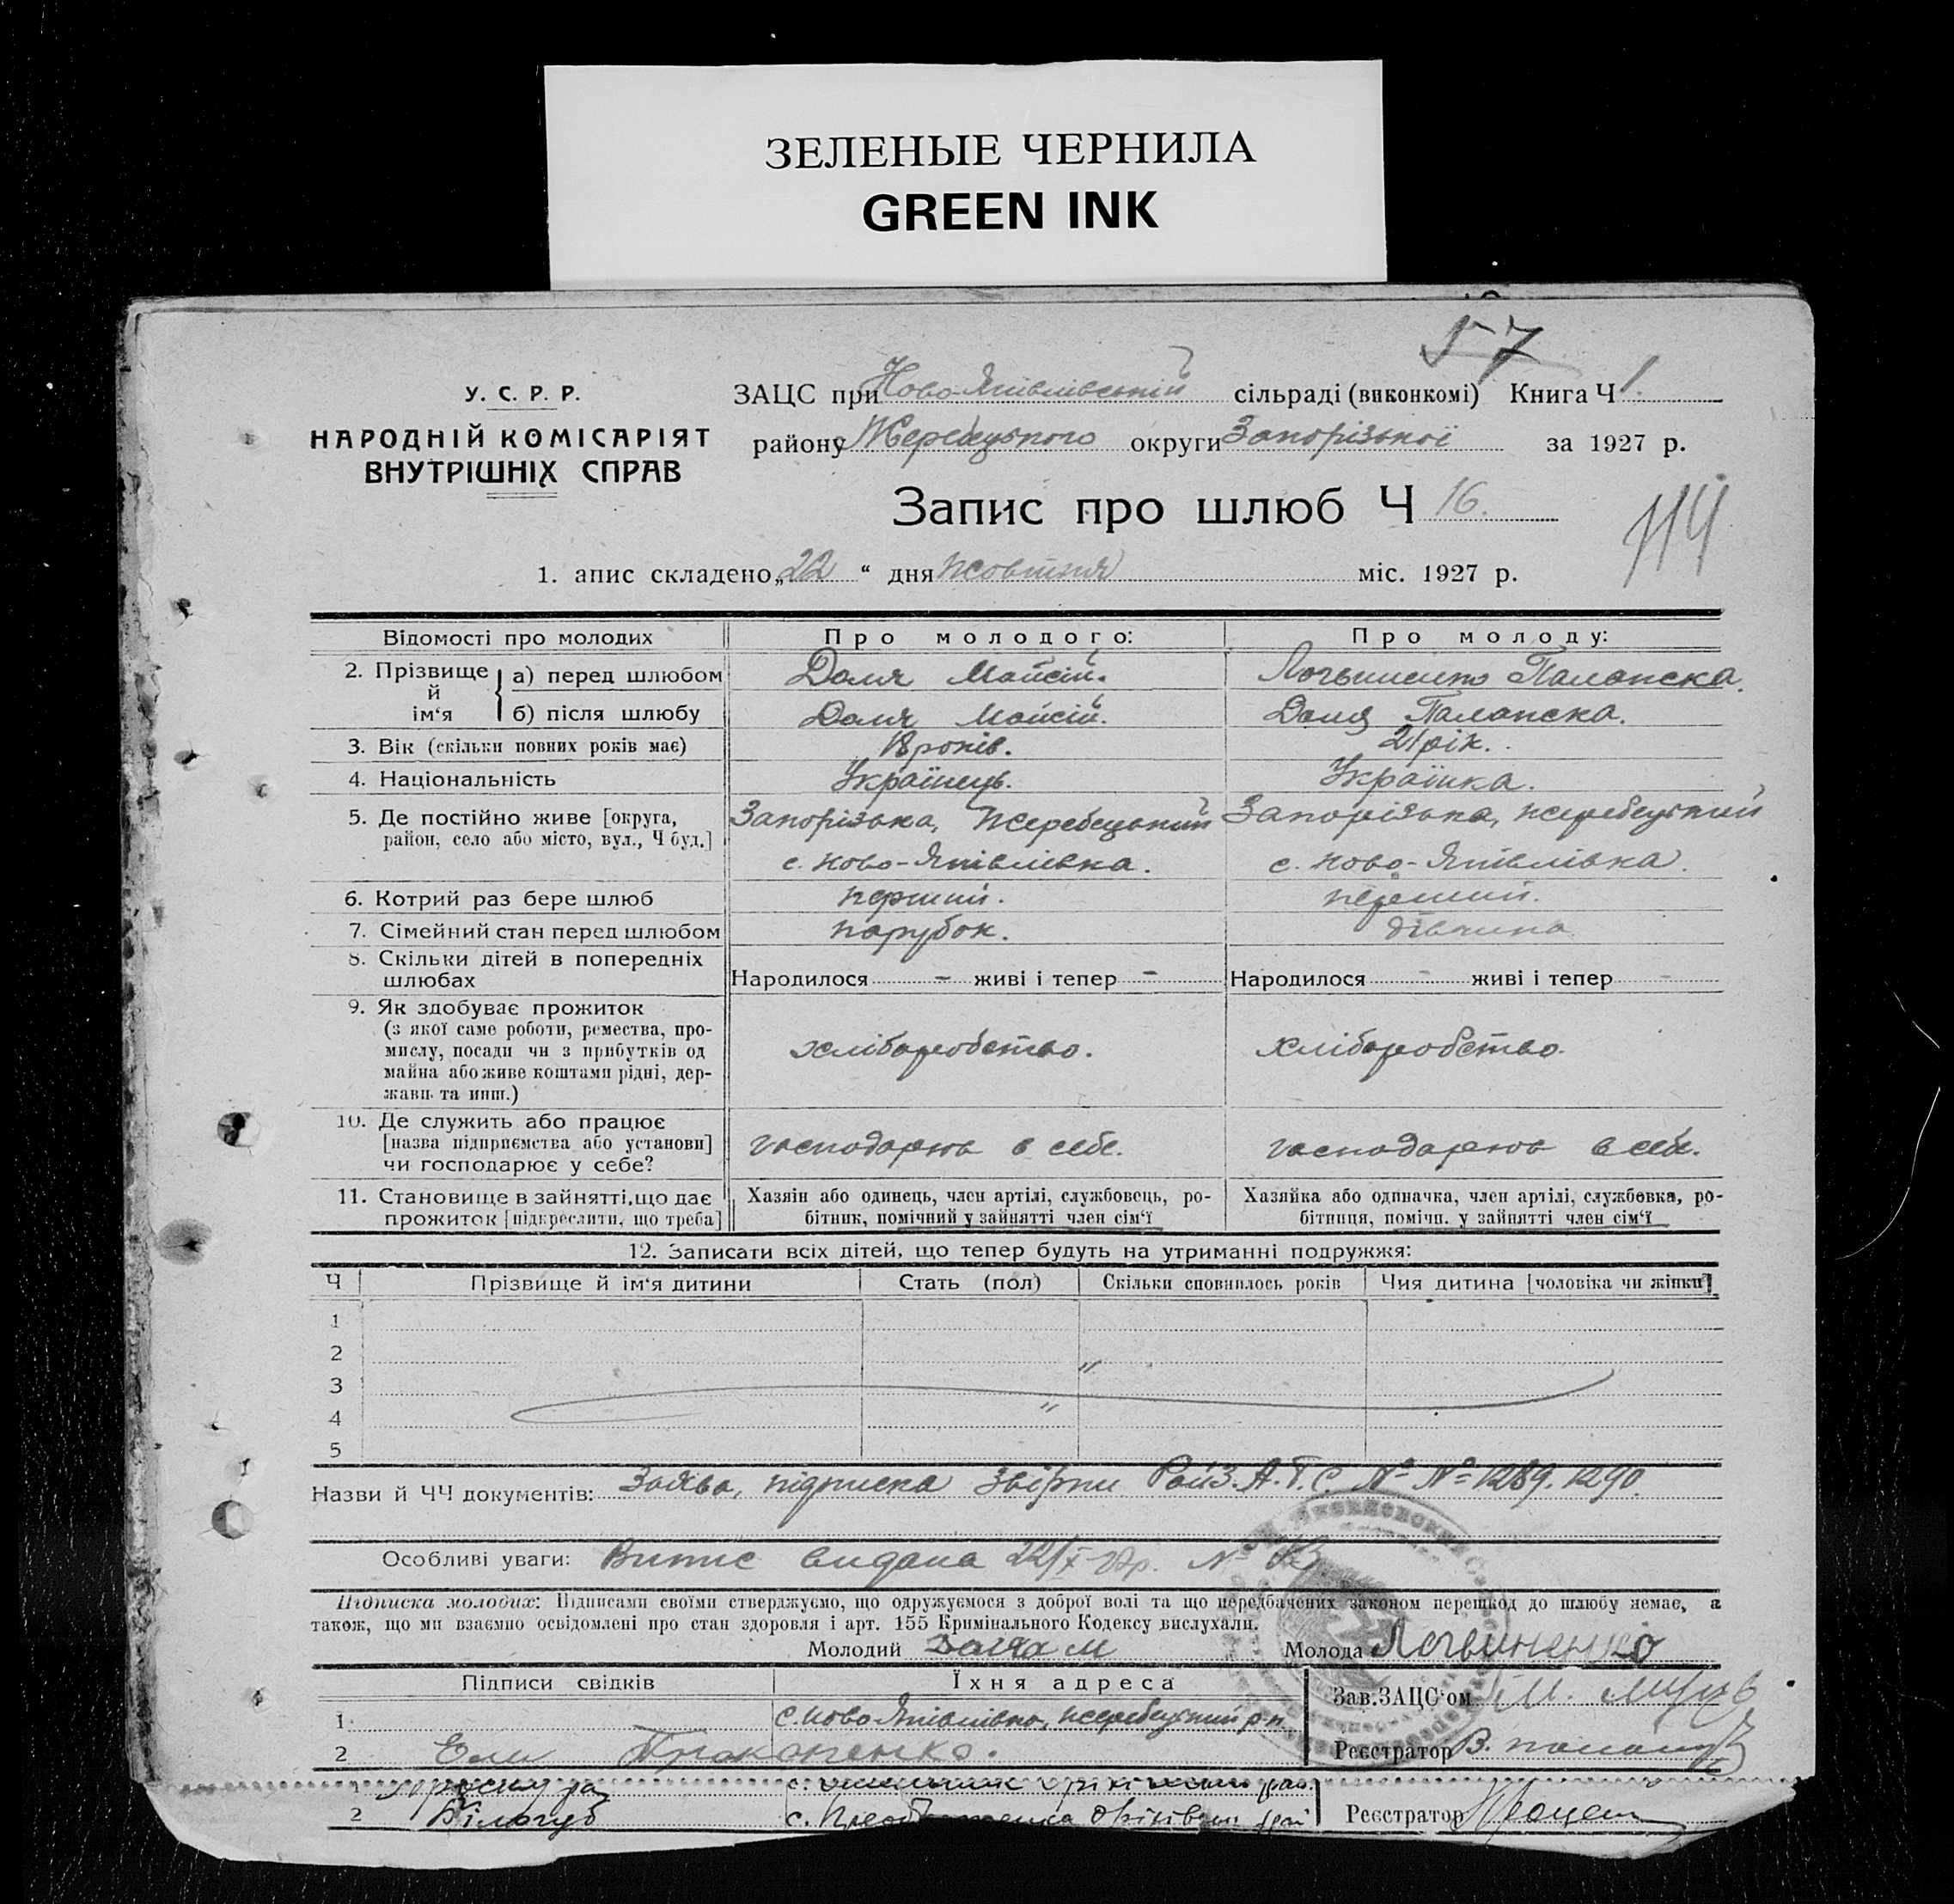 ЗЕЛЕНЫЕ ЧЕРНИЛА
GREEN INK
57
У. С. Р. Р.
НАРОДНІЙ КОМІСАРІЯТ
ВНУТРІШНІХ СПРАВ
ЗАЦС при Ново-Яківлівській сільраді (виконкомі) Книга Ч 1.
району Жеребецького округи Запорізької за 1927 р.
Запис про шлюб Ч 16.
114
1. апис складено „22“ дня жовтня міс. 1927 р.
Відомості про молодих Про молодого: Про молоду:
2. Прізвище й ім‘я а) перед шлюбом Доля Мойсій. Логвиненко Палажка.
б) після шлюбу Доля Мойсій. Доля Палажка.
3. Вік (скільки повних років має) 18 років. 21 рік.
4. Національність Українець. Українка.
5. Де постійно живе [округа, Запорізька, Жеребецький Запорізька, жеребецький
район, село або місто, вул., Ч буд.] с. Ново-Яківлівка. с. Ново-Яківлівка.
6. Котрий раз бере шлюб перший. перший.
7. Сімейний стан перед шлюбом парубок. дівчина
8. Скільки дітей в попередніх
шлюбах Народилося - живі і тепер - Народилося - живі і тепер -
9. Як здобуває прожиток
(з якої саме роботи, ремества, про-
мислу, посади чи з прибутків од хліборобство. хліборобство.
майна або живе коштами рідні, дер-
жави та инш.)
10. Де служить або працює
[назва підприємства або установи] господарює в себе. господарює в себе.
чи господарює у себе?
11. Становище в зайнятті, що дає Хазяін або одинець, член артілі, службовець, ро- Хазяйка або одиначка, член артілі, службовка, ро-
прожиток [підкреслити, що треба] бітник, помічний у зайнятті член сім‘ї бітниця, помічн. у зайнятті член сім‘ї
12. Записати всіх дітей, що тепер будуть на утриманні подружжя:
Ч Прізвище й ім‘я дитини Стать (пол) Скільки сповнилось років Чия дитина [чоловіка чи жінки]
1
2 "
3
4 "
5
Назви й ЧЧ документів: Заява, підписка звірки РайЗ.А.Г.С. № № 1289. 1290.
Особливі уваги: Витис видана 22/X 27р. №
Підписка молодих: Підписами своїми стверджуємо, що одружуємося з доброї волі та що передбачених законом перешкод до шлюбу немає, а
також, що ми взаємно освідомлені про стан здоровля і арт. 155 Кримінального Кодексу вислухали.
Молодий Доля М Молода Логвиненко
Підписи свідків Їхня адреса Зав. ЗАЦС‘ом
1 с. Ново Яківлівка, жеребецький р-н
2 Прокопенко. Реєстратор В.
1
2 Білогуб с. Реєстратор